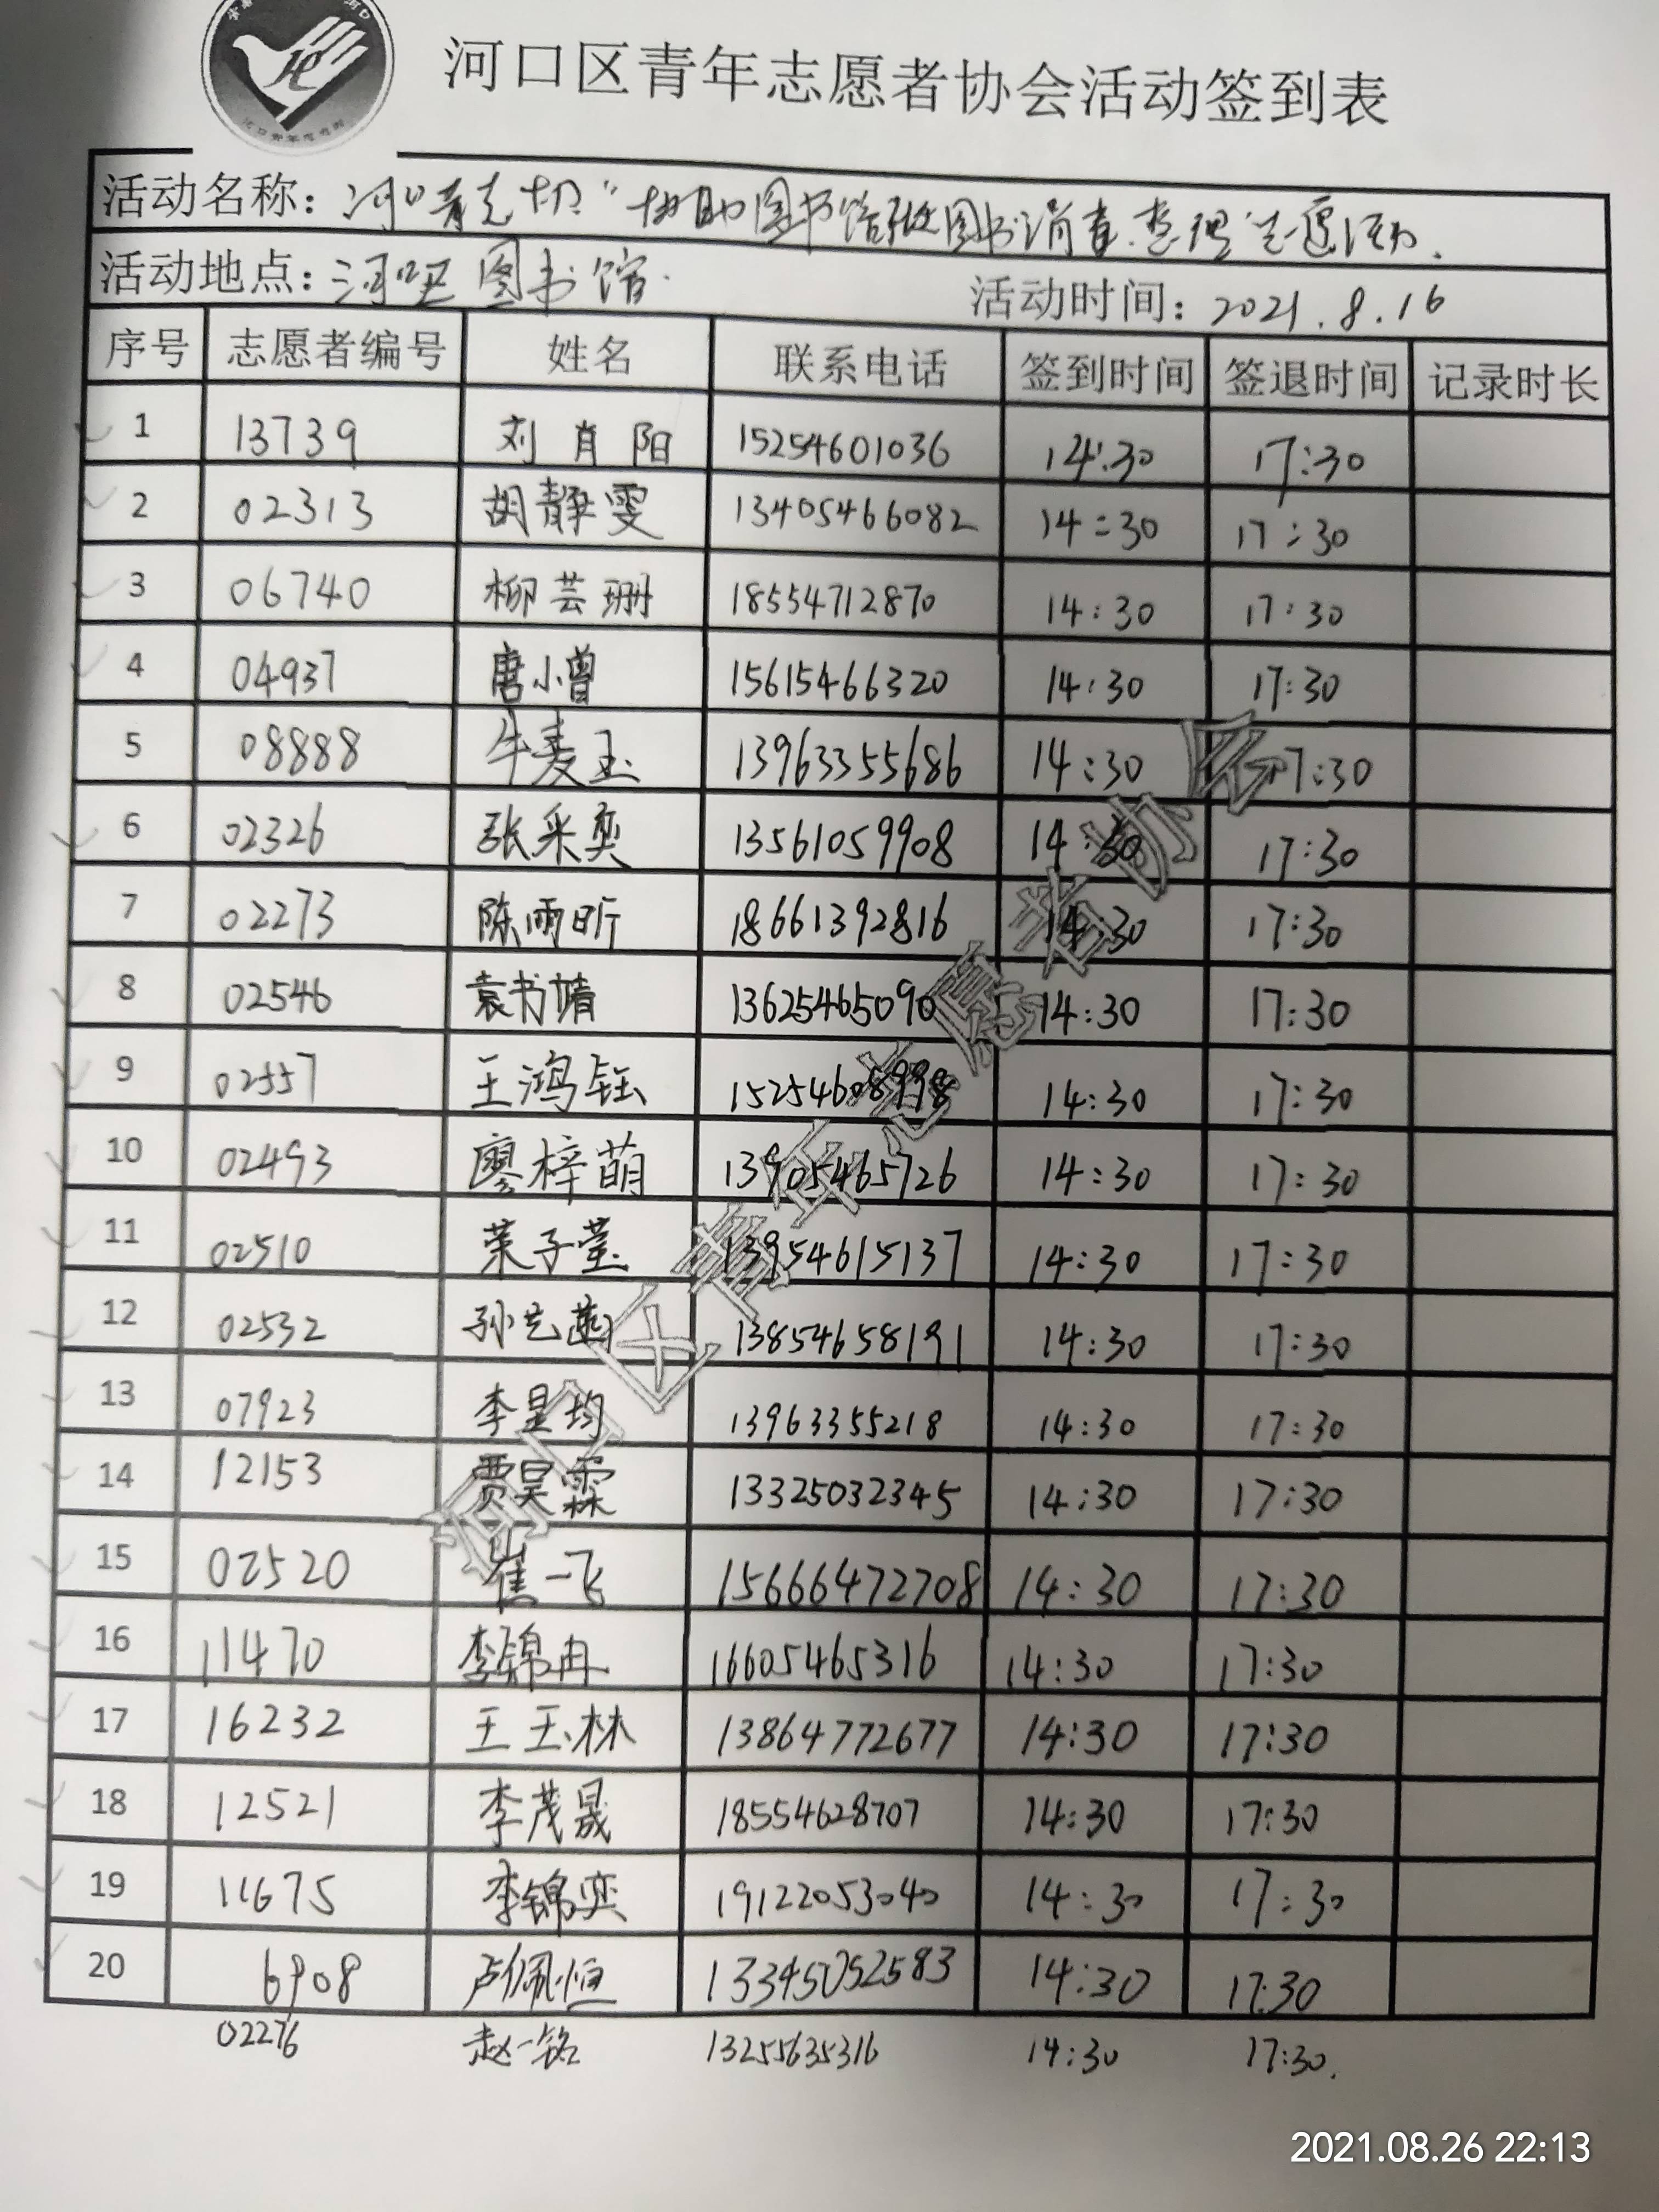 河口区青年志愿者协会活动签到表
活动名称：河口青志协"协助图书馆做图书消毒、整理"志愿活动.
活动地点：河口区图书馆. 活动时间：2021.8.16
序号 志愿者编号 姓名 联系电话 签到时间 签退时间 记录时长
1 13739 刘肖阳 15254601036 14:30 17:30
2 02313 胡静雯 13405466082 14:30 17:30
3 06740 柳芸珊 18554712870 14:30 17:30
4 04937 唐小曾 15615466320 14:30 17:30
5 08888 牛麦玉 13963355686 14:30 17:30
6 02326 张采奕 13561059908 14:30 17:30
7 02273 陈雨昕 18661392816 14:30 17:30
8 02546 袁书婧 13625465090 14:30 17:30
9 02557 王鸿钰 15254608998 14:30 17:30
10 02493 廖梓萌 13905465726 14:30 17:30
11 02510 荣子莹 13954615137 14:30 17:30
12 02532 孙艺菡 13854658191 14:30 17:30
13 07923 李昰均 13963355218 14:30 17:30
14 12153 贾昊霖 13325032345 14:30 17:30
15 02520 崔一飞 15666472708 14:30 17:30
16 11470 李锦冉 16605465316 14:30 17:30
17 16232 王玉林 13864772677 14:30 17:30
18 12521 李茂晟 18554628707 14:30 17:30
19 11675 李锦奕 19122053040 14:30 17:30
20 6908 卢佩恒 13345052583 14:30 17:30
02276 赵一铭 13255635316 14:30 17:30.
河口区青年志愿者协会
2021.08.26 22:13